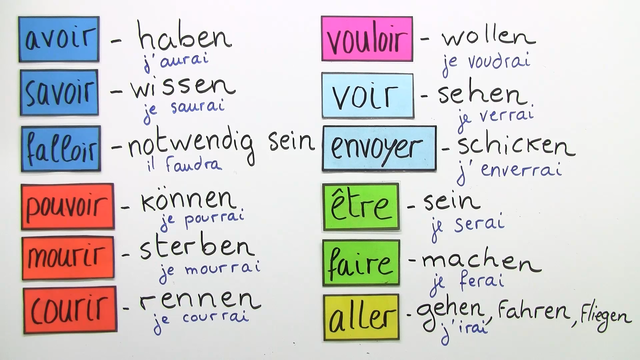 avoir - haben
j'aurai
savoir - wissen
je saurai
falloir - notwendig sein
il faudra
pouvoir - können
je pourrai
mourir - sterben
je mourrai
courir - rennen
je courrai
vouloir - wollen
je voudrai
voir - sehen
je verrai
envoyer - schicken
j'enverrai
être - sein
je serai
faire - machen
je ferai
aller - gehen, fahren, fliegen
j'irai